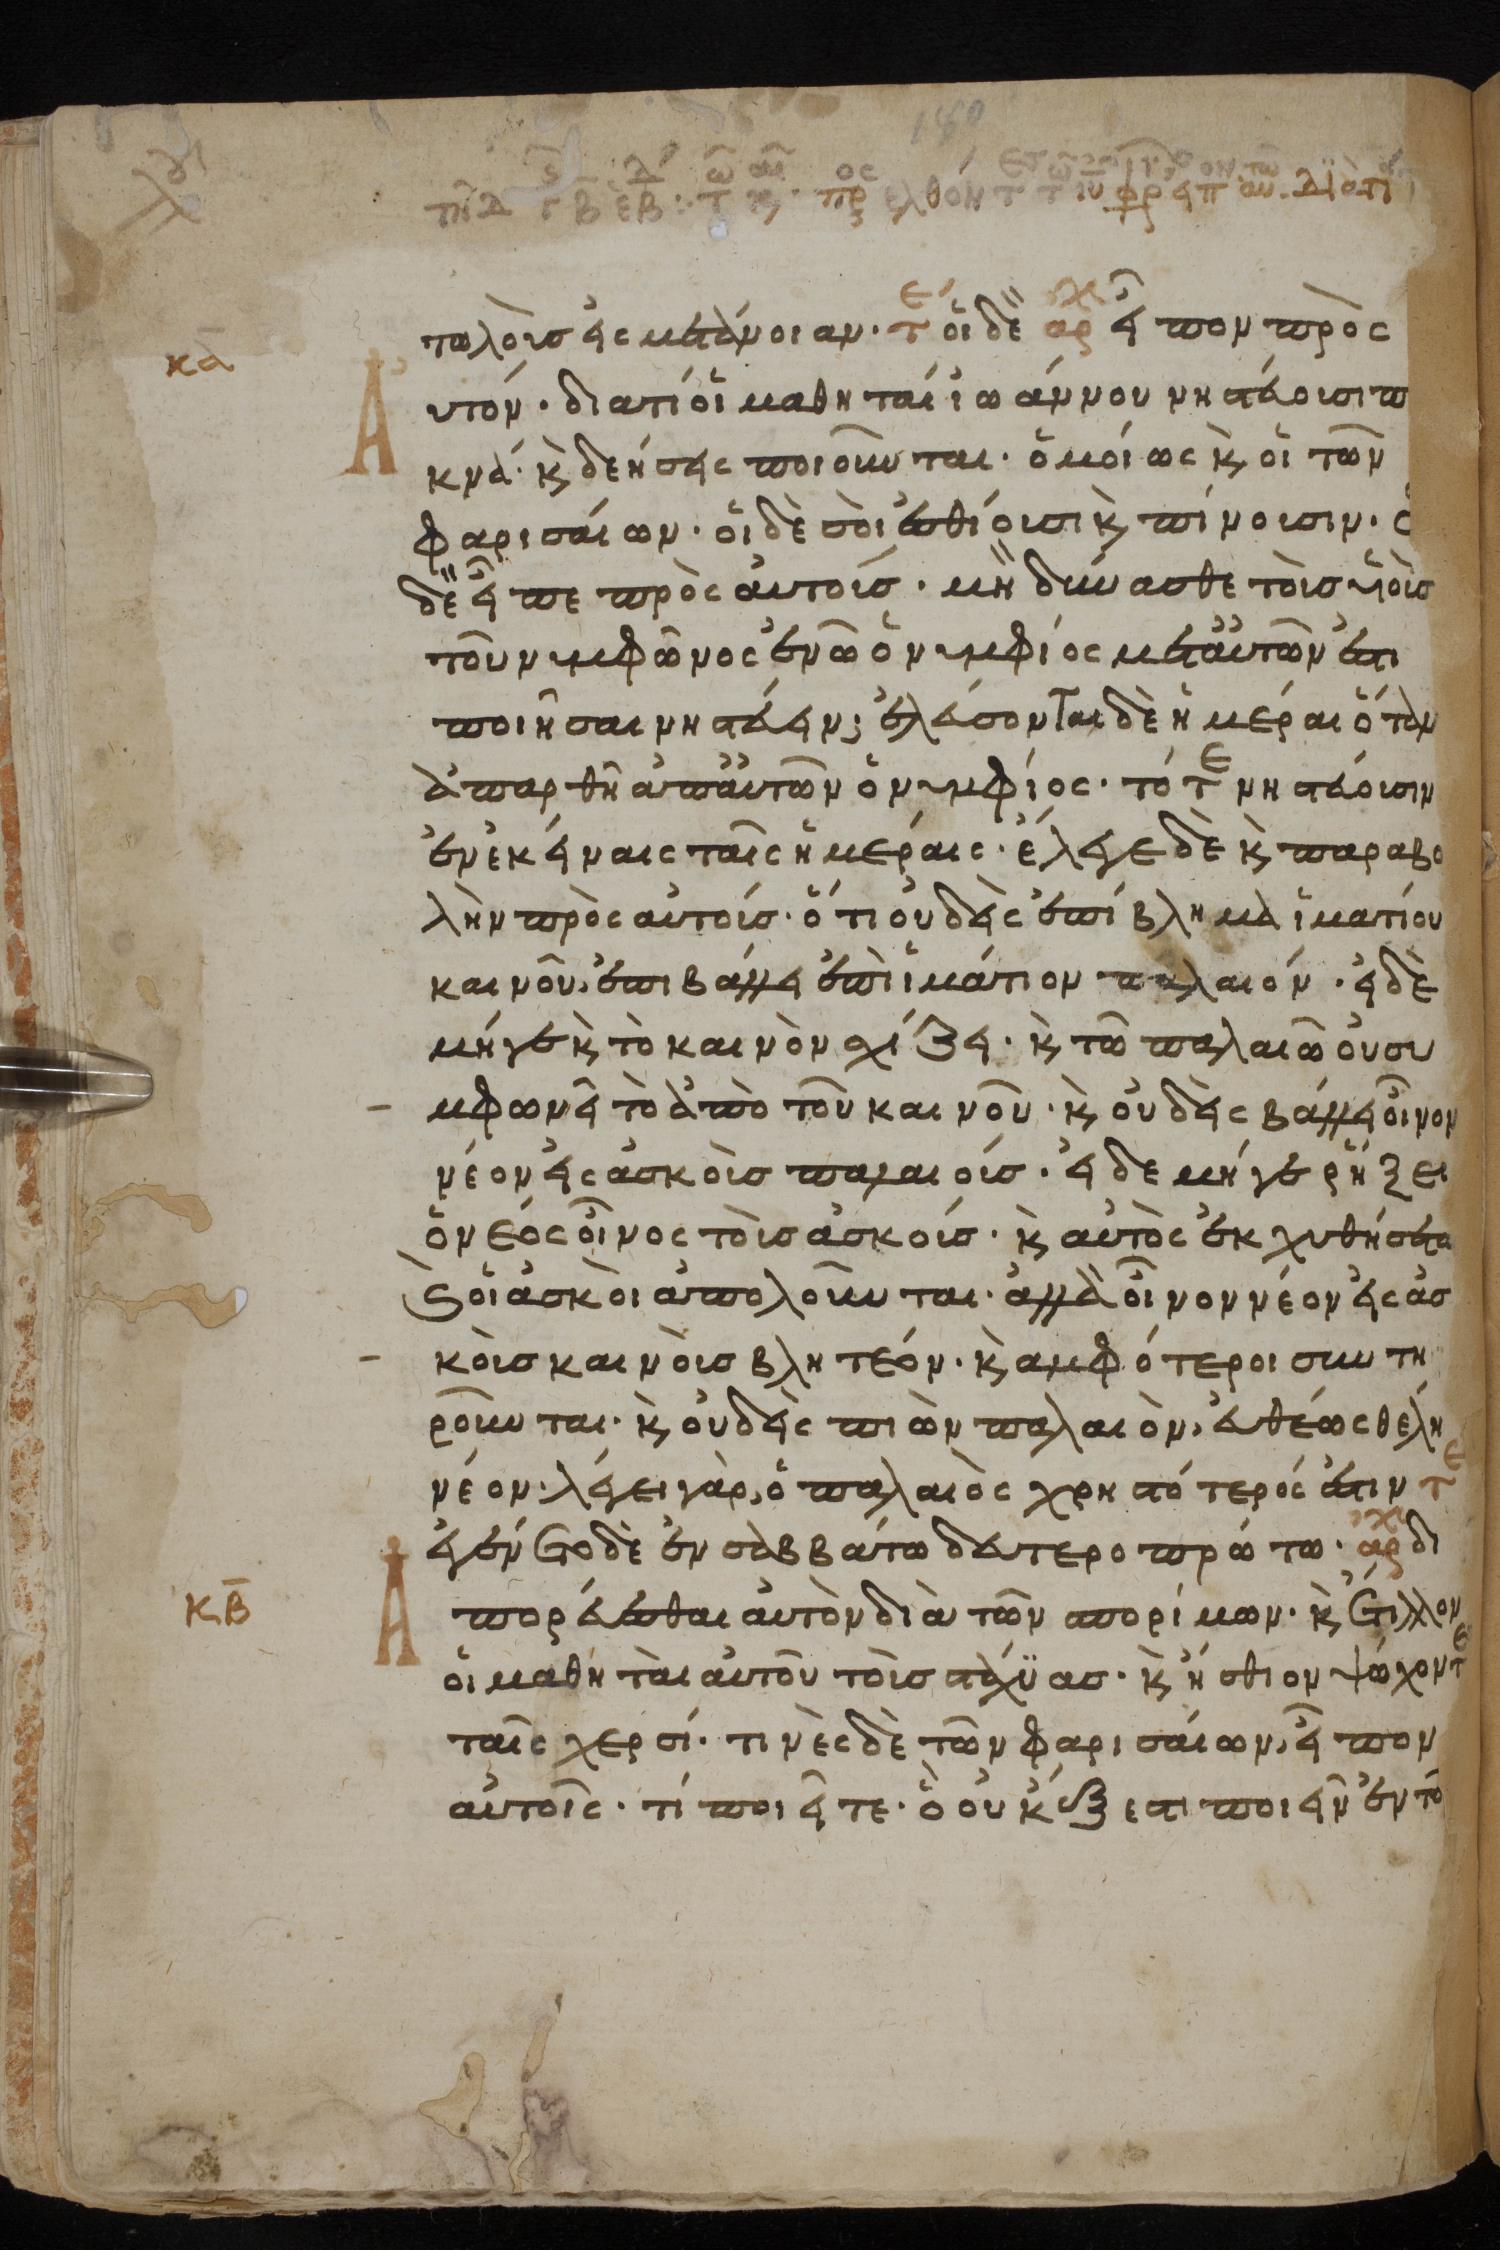 τωλοὺσ εἰς μετάνοιαν· τε οἱ δὲ αρχ εἶπον πρὸς
κα
Αυτόν· διατί οἱ μαθηταὶ ἰωάννου νηστεύουσι π
κνά· κ δεήσεις ποιοῦνται· ὁμοίως κ οἱ τῶν
φαρισαίων· οἱ δὲ σοὶ ἐσθίουσι κ πίνουσιν· ὁ
δὲ εἶπε πρὸς αὐτούσ· μὴ δύνασθε τοὺσ υἱοὺσ
τοῦ νυμφῶνος ἐν ῶ ὁ νυμφίος μετ αὐτῶν ἐστι
ποιῆσαι νηστεύειν; ἐλεύσονται δὲ ἡμέραι ὅταν
ἀπαρθῆ ἀπ αὐτῶν ὁ νυμφίος· τότε νηστεύουσιν
ἐν ἐκείναις ταῖς ἡμέραις· ἔλεγε δὲ κ παραβο
λὴν πρὸς αὐτούσ· ὅτι οὐδεὶς ἐπίβλημα ἱματίου
καινοῦ, ἐπιβάλλει ἐπὶ ἱμάτιον παλαιόν· εἰ δὲ
μήγε κ τὸ καινὸν σχίζει· κ τῶ παλαιῶ οὐ συ
μφωνεῖ τὸ ἀπὸ τοῦ καινοῦ· κ οὐδεὶς βάλλει οἶνον
νέον εἰς ἀσκοὺσ παλαιούσ· εἰ δε μήγε ῥήξει
ὁ νέος οἶνος τοὺσ ἀσκούσ· κ αὐτὸς ἐκχυθήσεται
κ οἱ ἀσκοὶ ἀπολοῦνται· ἀλλὰ οἶνον νέον εἰς ἀσ
κοὺσ καινοὺσ βλητέον· κ αμφότεροι συντη
ροῦνται· κ οὐδεὶς πιὼν παλαιὸν, εὐθέως θέλη
νέον· λέγει γὰρ, ὁ παλαιὸς χρηστότερός ἐστιν τε
ἐγένετο δὲ ἐν σαββάτω δευτεροπρώτω· αρχ δι
κβ
Απορεύεσθαι αὐτὸν διὰ τῶν σπορίμων· κ ἔτιλλον
οἱ μαθηταὶ αὐτοῦ τοὺσ στάχϋασ· κ ἤσθιον ψώχοντε
ταῖς χερσί· τινὲς δὲ τῶν φαρισαίων, εἶπον
αὐτοῖς· τί ποιεῖτε· ὃ οὐκ ἔξεστι ποιεῖν ἐν το